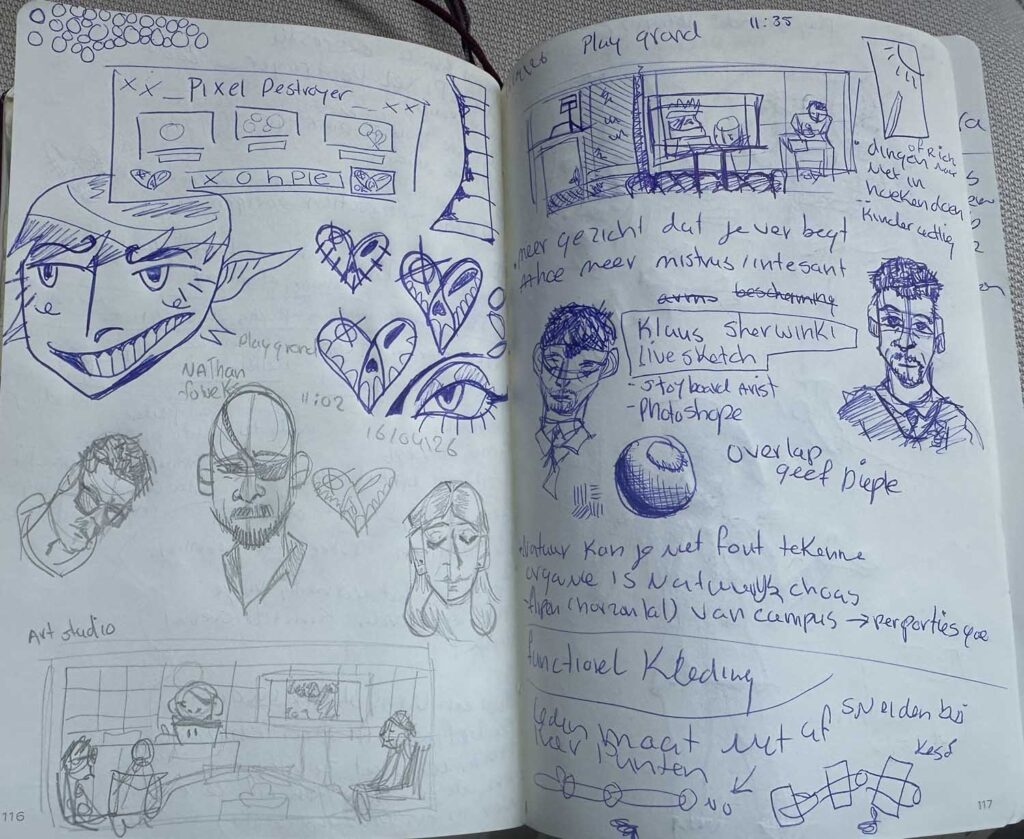 x x _ Pixel Destroyer _ x x
Play grond
NAThan
11:02
16/04/26
Art studio
116
Play grond
11:35
of Rich
dingen
niet in
hoeken doen
meer gezicht dat je ver begt
hoe meer mistrus / intesant
arms bescherming
Klaus Sherwinki
live sketch
- story board Arist
- Photoshope
overlap
geef Diepte
Natuur kan je niet fout tekenne
organie is Natuurlijk chaos
flipen (horizontal) van campus → perporties goe
functioneel Kleding
Leden maat niet af
snijden bij
punten
NO
117